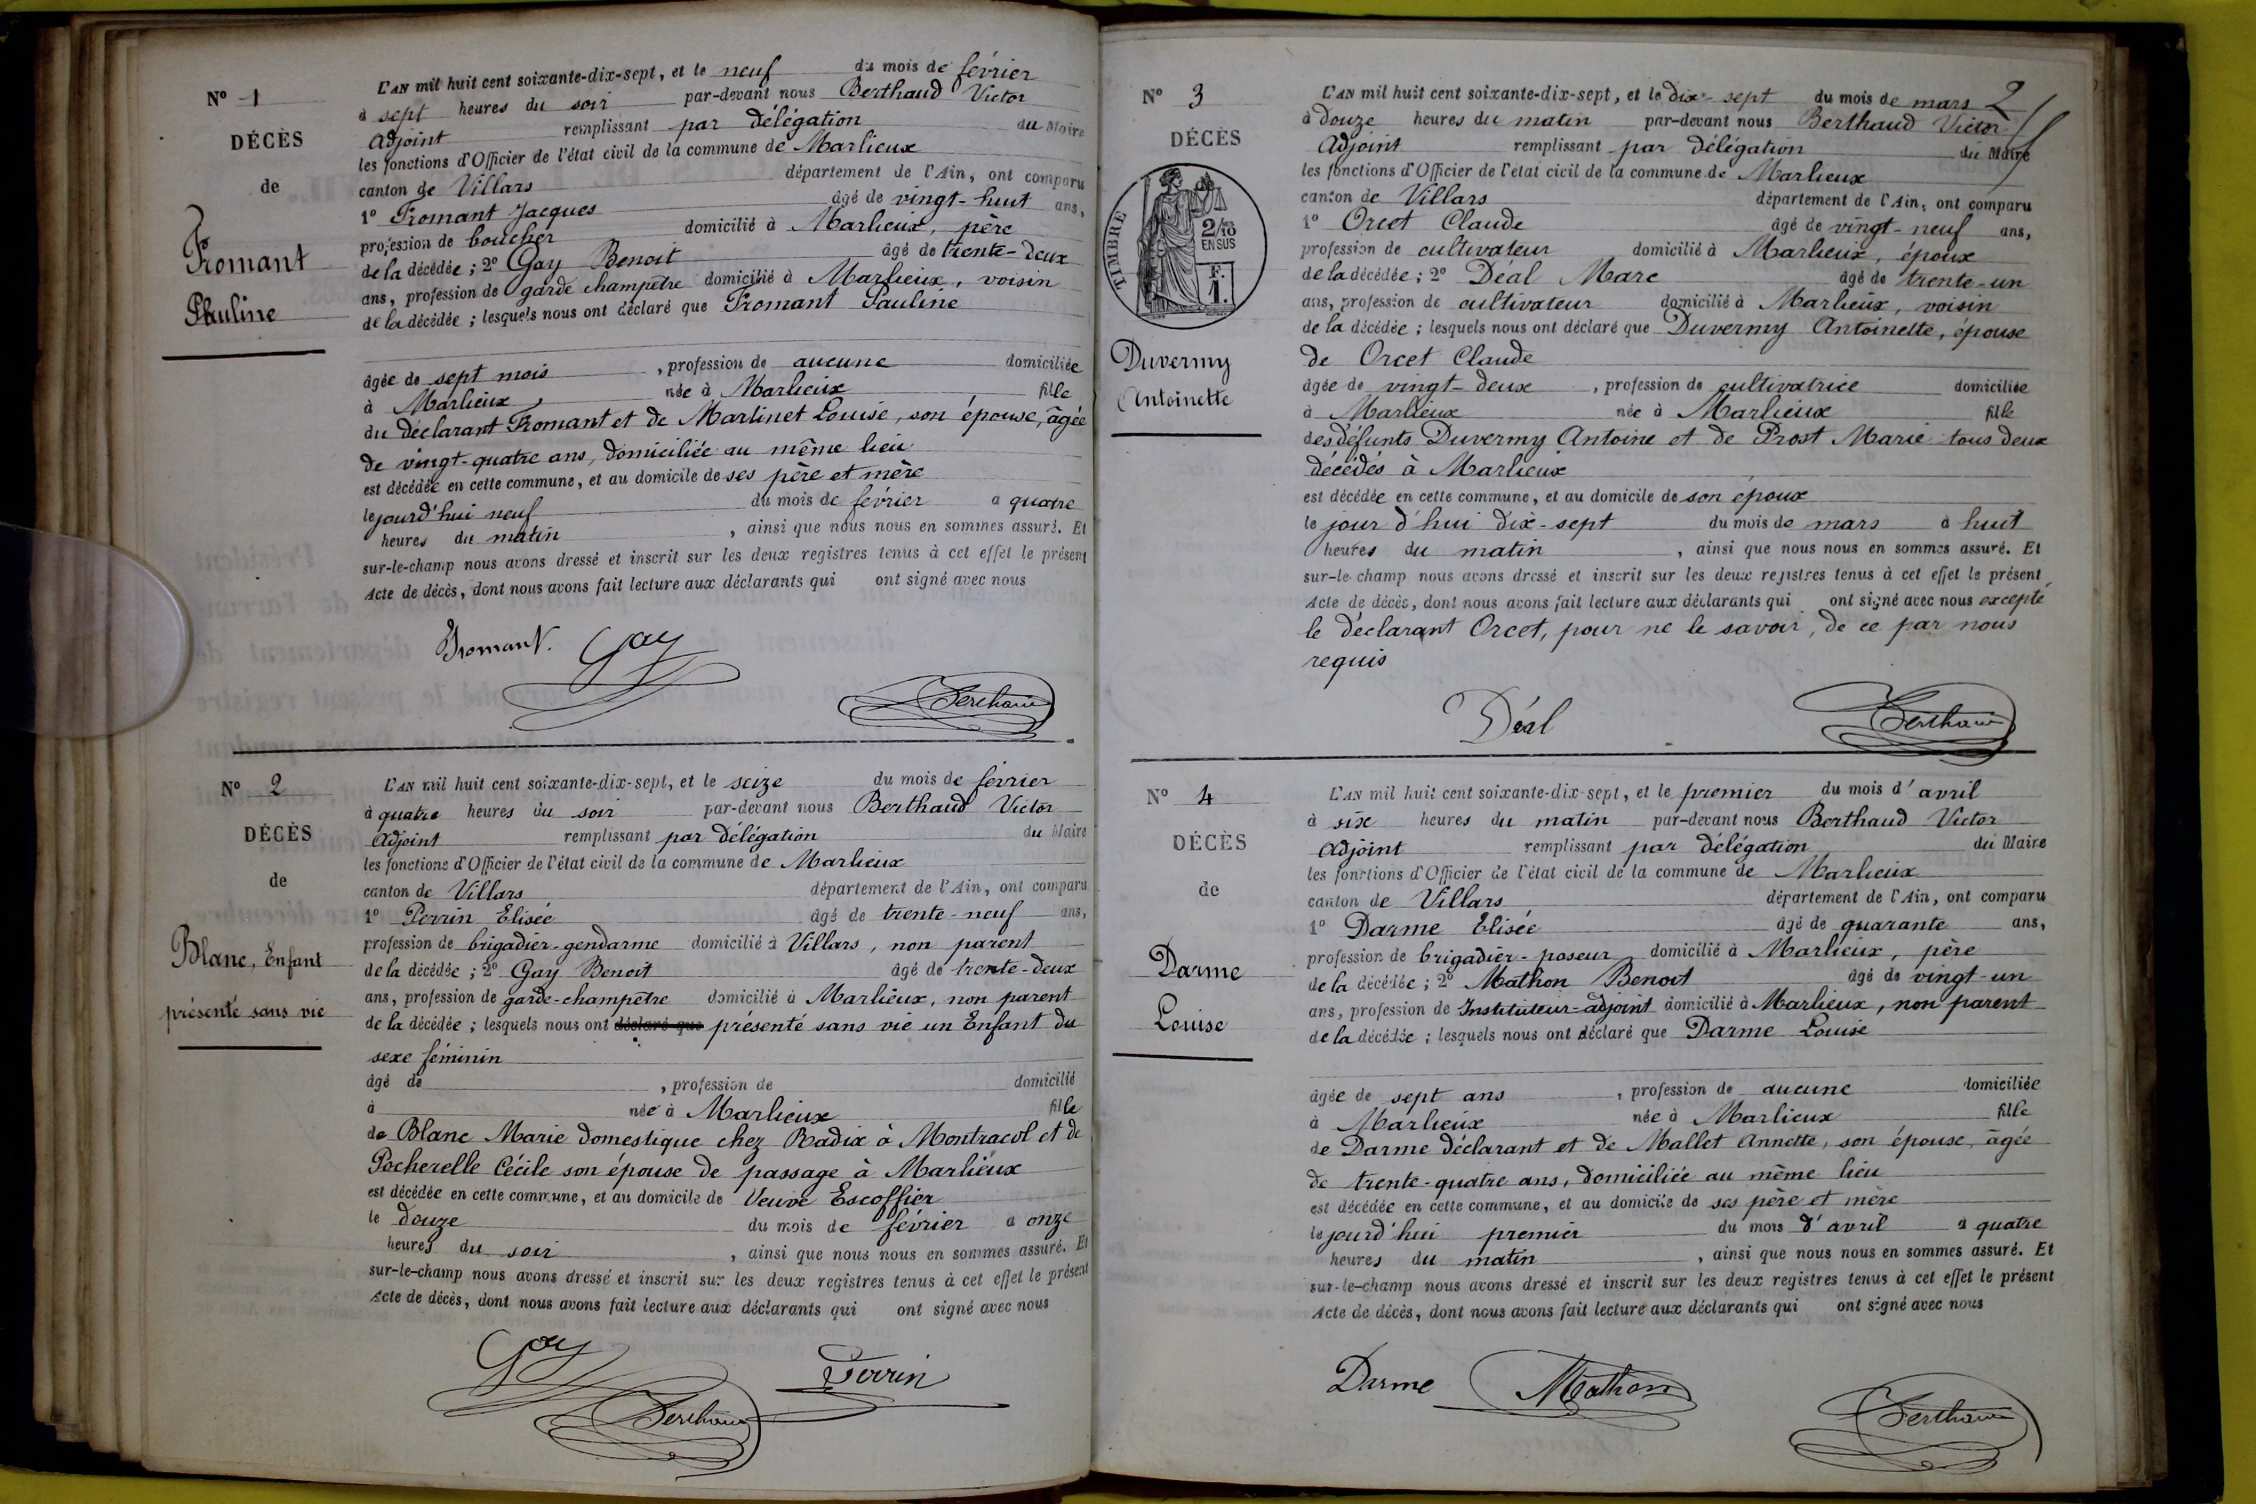 N° 1
DÉCÈS
de
Fromant
Pauline
L'AN mil huit cent soixante-dix-sept, et le neuf du mois de février
à sept heures du soir par-devant nous Berthaud Victor
Adjoint remplissant par délégation du Maire
les fonctions d'Officier de l'état civil de la commune de Marlieux
canton de Villars département de l'Ain, ont comparu
1° Fromant Jacques âgé de vingt-huit ans,
profession de boucher domicilié à Marlieux, père
de la décédée ; 2° Gay Benoit âgé de trente-deux
ans, profession de garde champêtre domicilié à Marlieux, voisin
de la décédée ; lesquels nous ont déclaré que Fromant Pauline
âgée de sept mois , profession de aucune domiciliée
à Marlieux née à Marlieux fille
du déclarant Fromant et de Martinet Louise, son épouse, âgée
de vingt-quatre ans, domiciliée au même lieu
est décédée en cette commune, et au domicile de ses père et mère
le jourd'hui neuf du mois de février a quatre
heures du matin , ainsi que nous nous en sommes assuré. Et
sur-le-champ nous avons dressé et inscrit sur les deux registres tenus à cet effet le présent
Acte de décès, dont nous avons fait lecture aux déclarants qui ont signé avec nous
Fromant. Gay
Berthaud
N° 2
DÉCÈS
de
Blanc, Enfant
présenté sans vie
L'AN mil huit cent soixante-dix-sept, et le seize du mois de février
à quatre heures du soir par-devant nous Berthaud Victor
Adjoint remplissant par délégation du Maire
les fonctions d'Officier de l'état civil de la commune de Marlieux
canton de Villars département de l'Ain, ont comparu
1° Perrin Elisée âgé de trente-neuf ans,
profession de brigadier-gendarme domicilié à Villars, non parent
de la décédée ; 2° Gay Benoit âgé de trente-deux
ans, profession de garde-champêtre domicilié à Marlieux, non parent
de la décédée ; lesquels nous ont déclaré que présenté sans vie un Enfant du
sexe féminin
âgé de , profession de domicilié
à née à Marlieux fille
de Blanc Marie domestique chez Radix à Montracol et de
Pocherelle Cécile son épouse de passage à Marlieux
est décédée en cette commune, et au domicile de Veuve Escoffier
le douze du mois de février a onze
heures du soir , ainsi que nous nous en sommes assuré. Et
sur-le-champ nous avons dressé et inscrit sur les deux registres tenus à cet effet le présent
Acte de décès, dont nous avons fait lecture aux déclarants qui ont signé avec nous
Gay Perrin
Berthaud
2
N° 3
DÉCÈS
TIMBRE
2/10
EN SUS
F.
1.
Duvermy
Antoinette
L'AN mil huit cent soixante-dix-sept, et le dix-sept du mois de mars
à douze heures du matin par-devant nous Berthaud Victor
Adjoint remplissant par délégation du Maire
les fonctions d'Officier de l'état civil de la commune de Marlieux
canton de Villars département de l'Ain, ont comparu
1° Orcet Claude âgé de vingt-neuf ans,
profession de cultivateur domicilié à Marlieux, époux
de la décédée ; 2° Déal Marc âgé de trente-un
ans, profession de cultivateur domicilié à Marlieux, voisin
de la décédée ; lesquels nous ont déclaré que Duvermy Antoinette, épouse
de Orcet Claude
âgée de vingt-deux , profession de cultivatrice domiciliée
à Marlieux née à Marlieux fille
des défunts Duvermy Antoine et de Prost Marie tous deux
décédés à Marlieux
est décédée en cette commune, et au domicile de son époux
le jour d'hui dix-sept du mois de mars à huit
heures du matin , ainsi que nous nous en sommes assuré. Et
sur-le-champ nous avons dressé et inscrit sur les deux registres tenus à cet effet le présent
Acte de décès, dont nous avons fait lecture aux déclarants qui ont signé avec nous excepté
le déclarant Orcet, pour ne le savoir, de ce par nous
requis
Déal
Berthaud
N° 4
DÉCÈS
de
Darme
Louise
L'AN mil huit cent soixante-dix-sept, et le premier du mois d'avril
à six heures du matin par-devant nous Berthaud Victor
Adjoint remplissant par délégation du Maire
les fonctions d'Officier de l'état civil de la commune de Marlieux
canton de Villars département de l'Ain, ont comparu
1° Darme Elisée âgé de quarante ans,
profession de brigadier-poseur domicilié à Marlieux, père
de la décédée ; 2° Mathon Benoit âgé de vingt-un
ans, profession de Instituteur-adjoint domicilié à Marlieux, non parent
de la décédée ; lesquels nous ont déclaré que Darme Louise
âgée de sept ans , profession de aucune domiciliée
à Marlieux née à Marlieux fille
de Darme déclarant et de Mallet Annette, son épouse, âgée
de trente-quatre ans, domiciliée au même lieu
est décédée en cette commune, et au domicile de ses père et mère
le jourd'hui premier du mois d'avril à quatre
heures du matin , ainsi que nous nous en sommes assuré. Et
sur-le-champ nous avons dressé et inscrit sur les deux registres tenus à cet effet le présent
Acte de décès, dont nous avons fait lecture aux déclarants qui ont signé avec nous
Darme Mathon
Berthaud